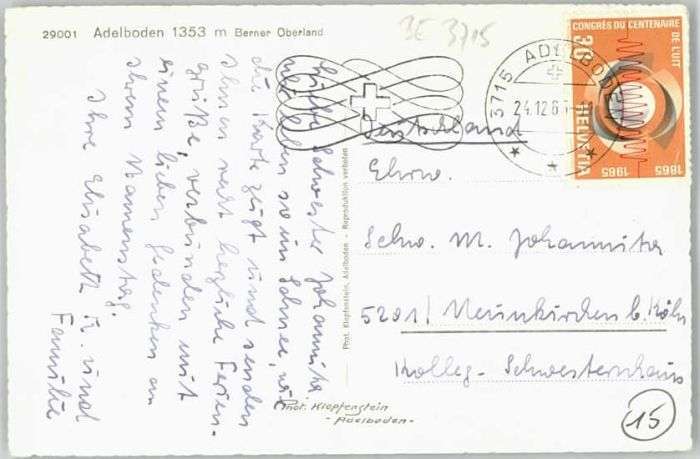 29001 Adelboden 1353 m Berner Oberland
BE 3715
Liebe Schwester Johannita,
wir leben so im Schnee, wie
die Karte zeigt und senden
Ihnen recht herzliche Ferien-
grüße, verbunden mit
einem lieben Gedenken an
Ihrem Namenstag.
Ihre Elisabeth K. und
Familie
Phot. Klopfenstein, Adelboden - Reproduktion verboten
Phot. Klopfenstein
- Adelboden -
3715 ADELBODEN
24.12.65
CONGRÈS DU CENTENAIRE
DE L'UIT
30
HELVETIA
1865
1965
Deutschland
Ehrw.
Schw. M. Johannita
5201 / Neunkirchen b. Köln
Kolleg-Schwesternhaus
15